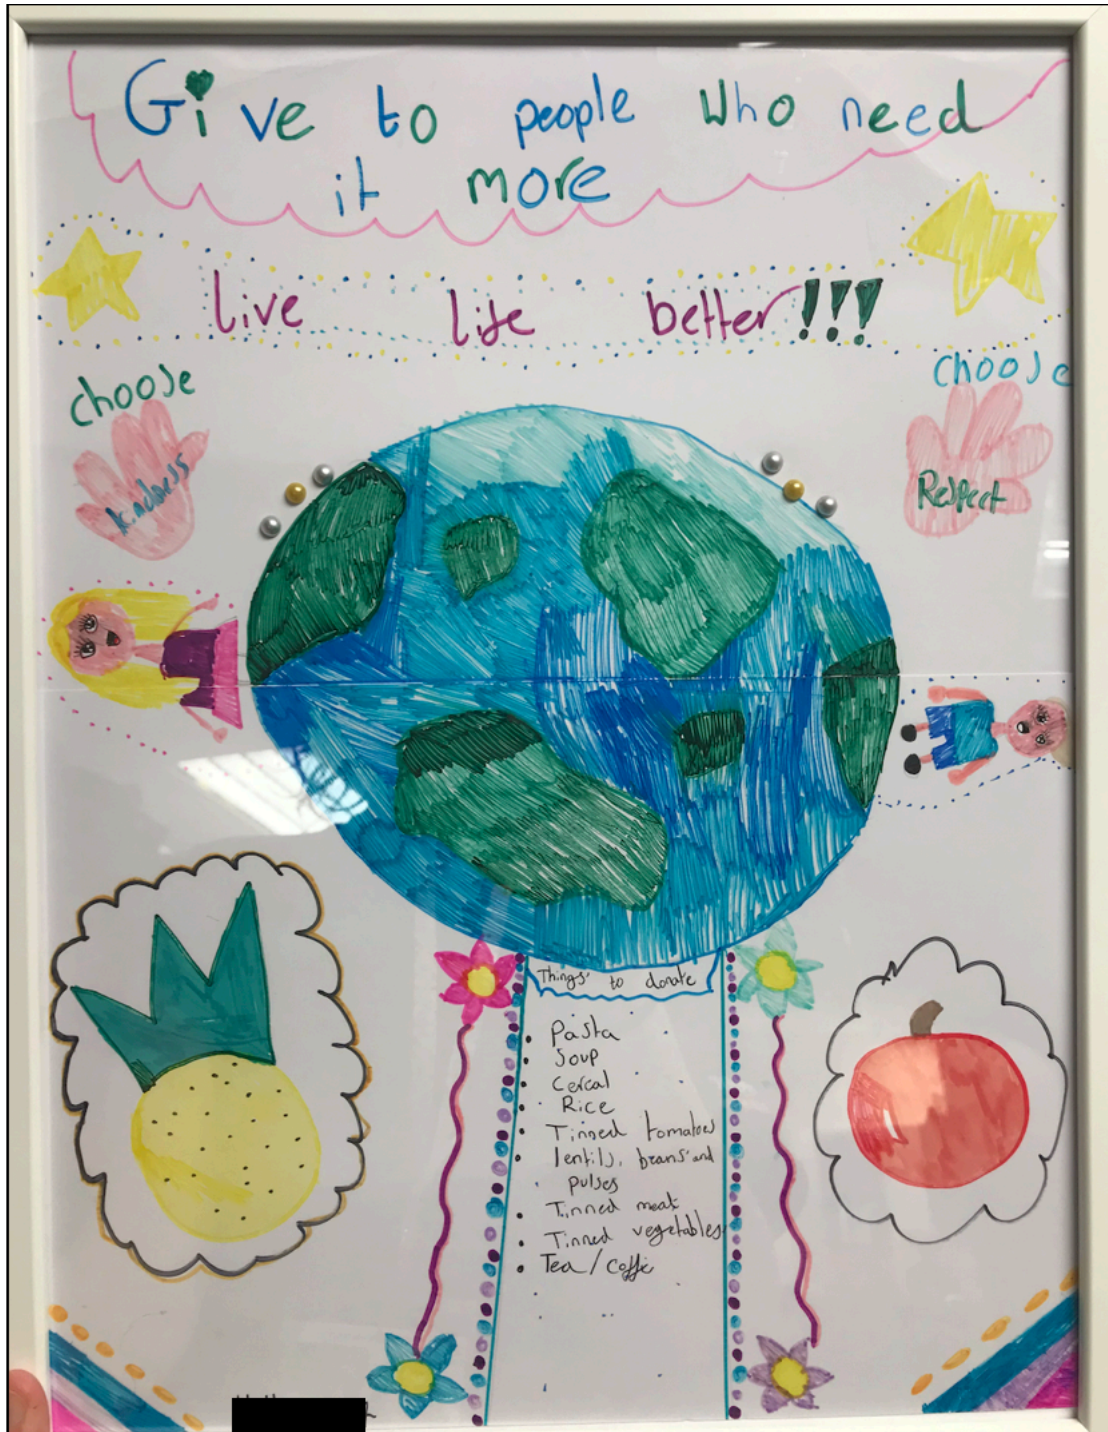 Give to people who need
it more
live life better!!!
choose
kindness
choose
Respect
Things to donate
• Pasta
• Soup
• Cereal
• Rice
• Tinned tomatoes
• lentils, beans and
pulses
• Tinned meat
• Tinned vegetables
• Tea/coffe